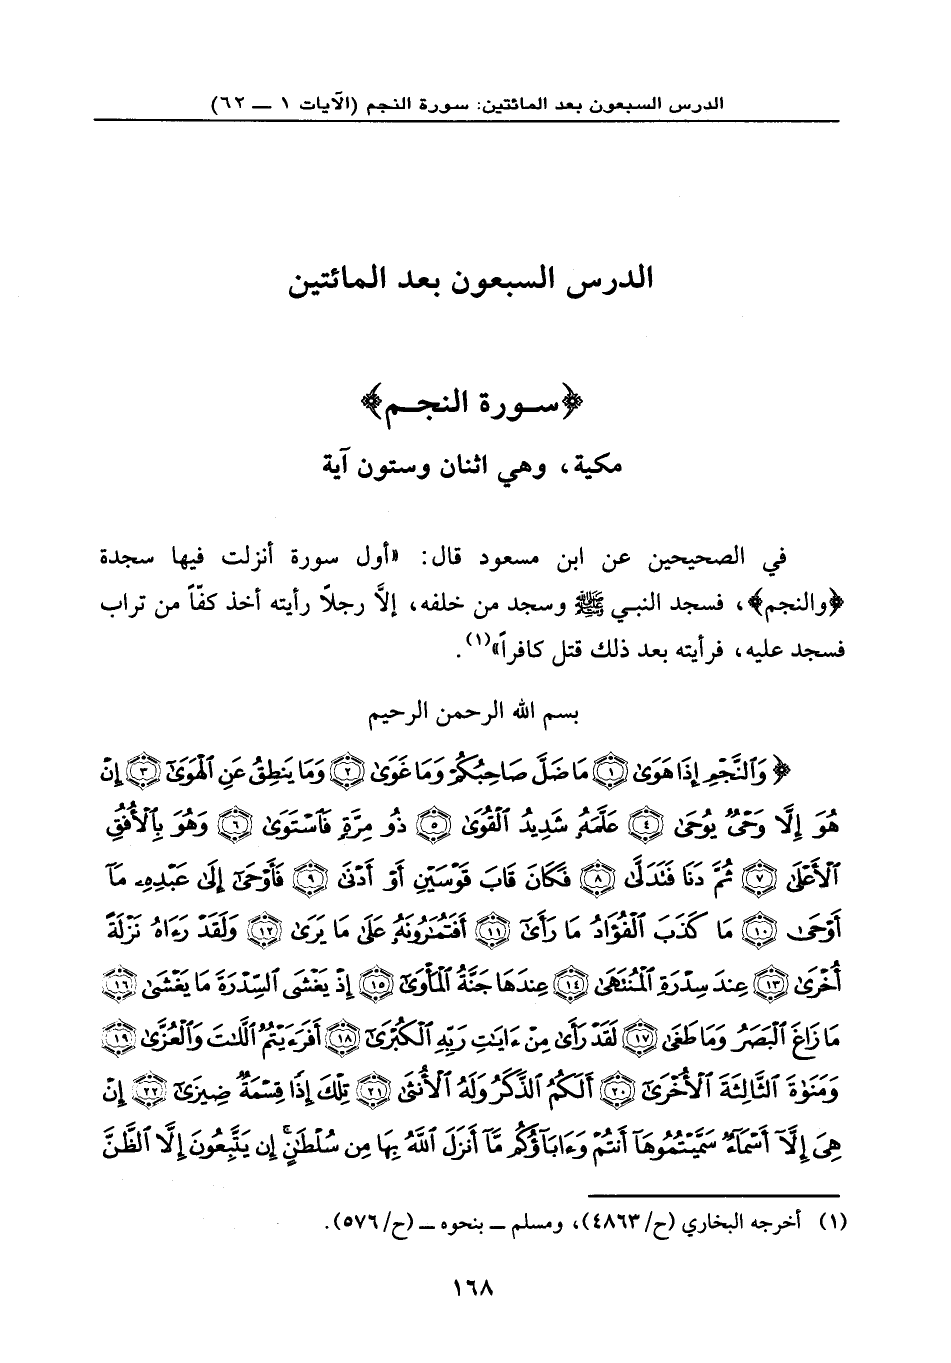 الدرس السبعون بعد المائتين: سورة النجم (الآيات ١ ــ ٦٢)
الدرس السبعون بعد المائتين
﴿سـورة النجـم﴾
مكية، وهي اثنان وستون آية
في الصحيحين عن ابن مسعود قال: «أول سورة أنزلت فيها سجدة
﴿والنجم﴾، فسجد النبي ﷺ وسجد من خلفه، إلَّا رجلاً رأيته أخذ كفّاً من تراب
فسجد عليه، فرأيته بعد ذلك قتل كافراً»(١).
بسم الله الرحمن الرحيم
﴿ وَٱلنَّجْمِ إِذَا هَوَىٰ ١ مَا ضَلَّ صَاحِبُكُمْ وَمَا غَوَىٰ ٢ وَمَا يَنطِقُ عَنِ ٱلْهَوَىٰٓ ٣ إِنْ
هُوَ إِلَّا وَحْىٌ يُوحَىٰ ٤ عَلَّمَهُۥ شَدِيدُ ٱلْقُوَىٰ ٥ ذُو مِرَّةٍ فَٱسْتَوَىٰ ٦ وَهُوَ بِٱلْأُفُقِ
ٱلْأَعْلَىٰ ٧ ثُمَّ دَنَا فَتَدَلَّىٰ ٨ فَكَانَ قَابَ قَوْسَيْنِ أَوْ أَدْنَىٰ ٩ فَأَوْحَىٰٓ إِلَىٰ عَبْدِهِۦ مَآ
أَوْحَىٰ ١٠ مَا كَذَبَ ٱلْفُؤَادُ مَا رَأَىٰٓ ١١ أَفَتُمَٰرُونَهُۥ عَلَىٰ مَا يَرَىٰ ١٢ وَلَقَدْ رَءَاهُ نَزْلَةً
أُخْرَىٰ ١٣ عِندَ سِدْرَةِ ٱلْمُنتَهَىٰ ١٤ عِندَهَا جَنَّةُ ٱلْمَأْوَىٰٓ ١٥ إِذْ يَغْشَى ٱلسِّدْرَةَ مَا يَغْشَىٰ ١٦
مَا زَاغَ ٱلْبَصَرُ وَمَا طَغَىٰ ١٧ لَقَدْ رَأَىٰ مِنْ ءَايَٰتِ رَبِّهِ ٱلْكُبْرَىٰٓ ١٨ أَفَرَءَيْتُمُ ٱللَّٰتَ وَٱلْعُزَّىٰ ١٩
وَمَنَوٰةَ ٱلثَّالِثَةَ ٱلْأُخْرَىٰٓ ٢٠ أَلَكُمُ ٱلذَّكَرُ وَلَهُ ٱلْأُنثَىٰ ٢١ تِلْكَ إِذًا قِسْمَةٌ ضِيزَىٰٓ ٢٢ إِنْ
هِىَ إِلَّآ أَسْمَآءٌ سَمَّيْتُمُوهَآ أَنتُمْ وَءَابَآؤُكُم مَّآ أَنزَلَ ٱللَّهُ بِهَا مِن سُلْطَٰنٍ ۚ إِن يَتَّبِعُونَ إِلَّا ٱلظَّنَّ
(١) أخرجه البخاري (ح/٤٨٦٣)، ومسلم ــ بنحوه ــ (ح/٥٧٦).
١٦٨